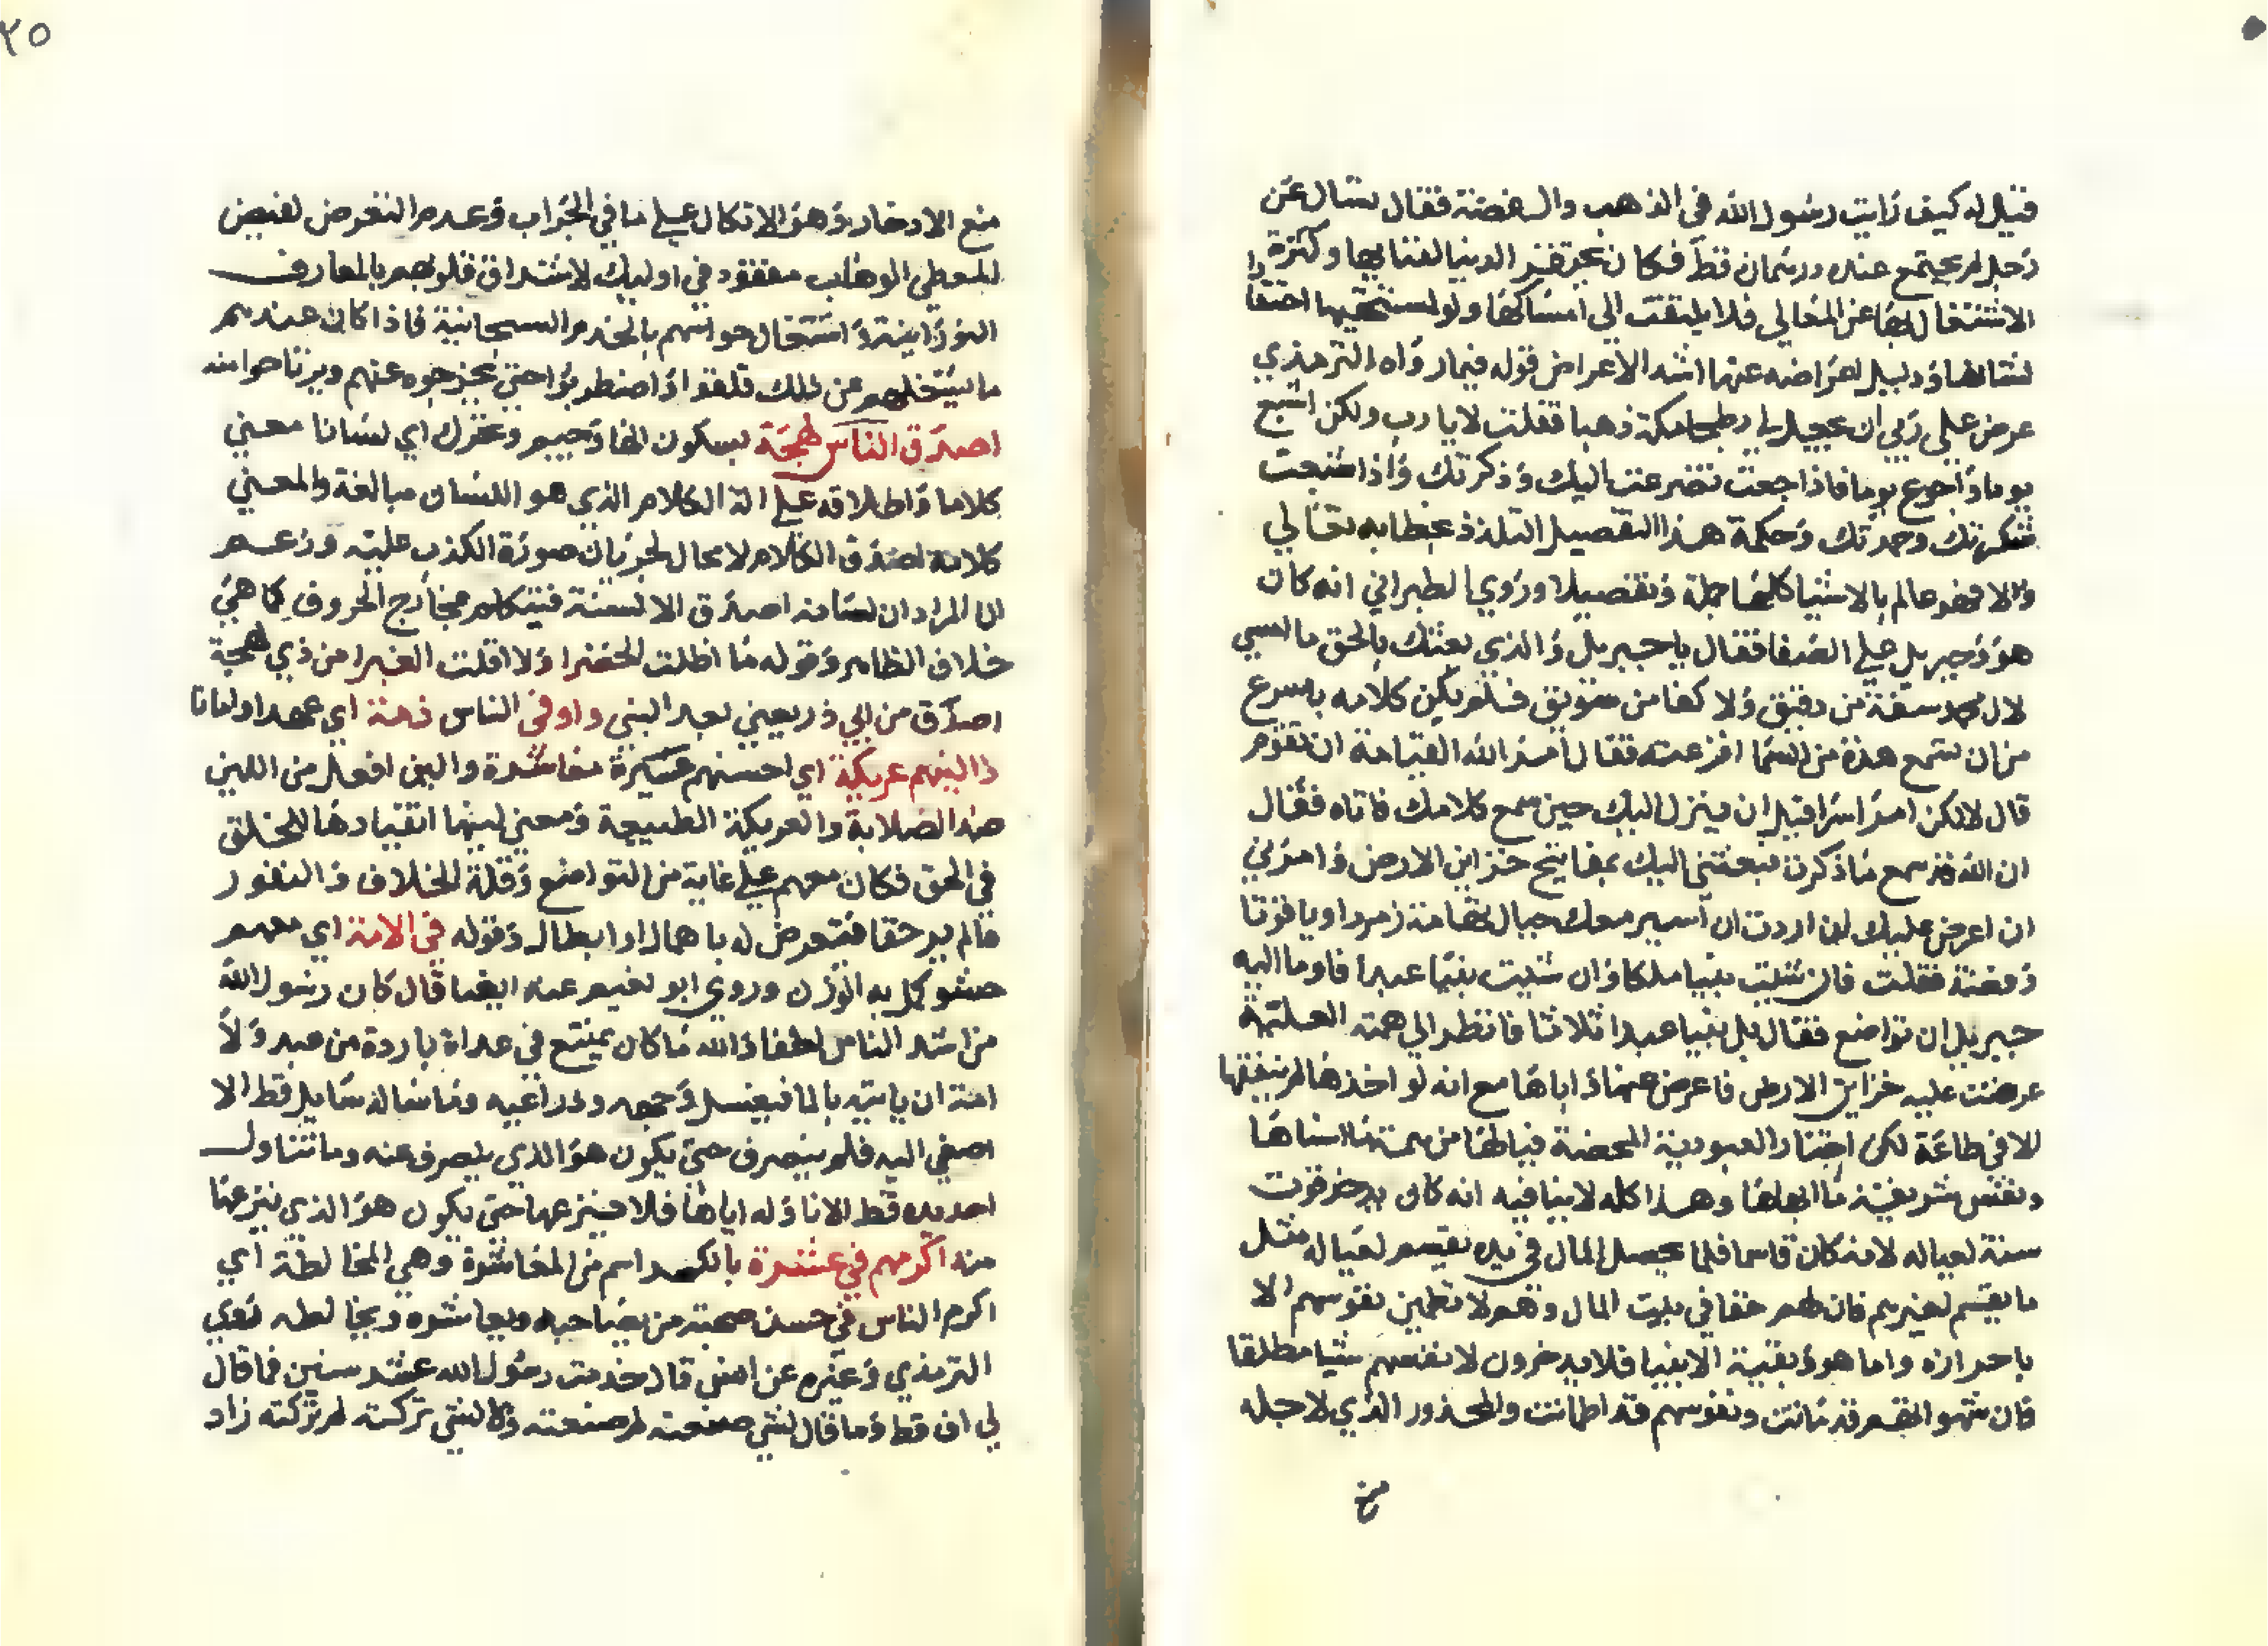 فقيل له كيف رايت رسول الله في الذهب والفضة فقال يسال عن
رجل لم يجتمع عنده درهمان قط فكان يحتقر الدنيا لفنايها وكثرة
الاشتغال بها عن المعالي فلا يلتفت الي امساكها ولو لمستحقيها احتقارا
لشانها ودليل اعراضه عنها اشد الاعراض قوله فيما رواه الترمذي
عرض علي ربي ان يجعل لي بطحا مكة ذهبا فقلت لا يا رب ولكن اشبع
يوما واجوع يوما فاذا جعت تضرعت اليك وذكرتك واذا شبعت
شكرتك وحمدتك وحكمة هذا التفصيل التلذذ بخطابه تعالي
والا فهو عالم بالاشيا كلها جملة وتفصيلا وروي الطبراني انه كان
هو وجبريل علي الصفا فقال يا جبريل والذي بعثك بالحق ما امسي
لال محمد سفة من دقيق ولا كفا من سويق فلم يكن كلامه باسرع
من ان سمع هدة من السما افزعته فقال امر الله القيامة ان تقوم
قال لا لكن امر اسرافيل ان ينزل اليك حين سمع كلامك فاتاه فقال
ان الله قد سمع ما ذكرت فبعثني اليك بمفاتيح خزاين الارض وامرني
ان اعرض عليك ان اردت ان اسير معك جبال تهامة زمردا وياقوتا
وفضة فقلت فان شيت نبيا ملكا وان شيت نبيا عبدا فاوما اليه
جبريل ان تواضع فقال بل نبيا عبدا ثلاثا فانظر الي همته العلية
عرضت عليه خزاين الارض فاعرض عنها واباها مع انه لو اخذها لم ينفقها
الا في طاعة لكن اختار العبودية المحضة فيا لها من همة ما اسناها
ونفس شريفة ما ابهاها وهذا كله لا ينافيه انه كان يدخر قوت
سنة لعياله لانه كان قاسما فلما يحصل المال في يده يقسم لعياله مثل
ما يقسم لغيرهم فان لهم حقا في بيت المال وهم لا تطمين نفوسهم الا
باحرازه واما هو وبقية الانبيا فلا يدخرون لانفسهم شيا مطلقا
فان شهواتهم قد ماتت ونفوسهم قد اطمانت والمحذور الذي لاجله
من
٢٥
منع الادخار وهو الاتكال علي ما في الجراب وعدم التعرض لفيض
المعطي الوهاب مفقود في اوليك لاشراق قلوبهم بالمعارف
النورانية واشتغال حواسهم بالخدم السبحانية فاذا كان عندهم
ما يشغلهم عن ذلك قلقوا واضطربوا حتي يخرجوه عنهم ويرتاحوا منه
اصدق الناس لهجة بسكون الها وجيم وتحرك اي لسانا معني
كلاما واطلاقه علي الة الكلام الذي هو اللسان مبالغة والمعني
كلامه اصدق الكلام لا مجال لجريان صورة الكذب عليه وزعم
ان المراد ان لسانه اصدق الالسنة فيتكلم بمخارج الحروف كما هي
خلاف الظاهر وقوله ما اظلت الخضرا ولا اقلت الغبرا من ذي لهجة
اصدق من ابي ذر يعني بعد النبي واوفي الناس ذمة اي عهدا وامانا
والينهم عريكة اي احسنهم عشيرة معاشرة والين افعل من اللين
ضد الصلابة والعريكة الطبيعة ومعني لينها انقيادها للخلق
في الحق فكان معهم علي غاية من التواضع وقلة الخلاف والنفور
ما لم ير حقا فيتعرض له باهمال او ابطال وقوله في الامة اي معهم
حشو كمل به الوزن وروي ابو نعيم عنه ايضا قال كان رسول الله
من اشد الناس لطفا والله ما كان يمتنع في غداة باردة من عبد ولا
امة ان ياتيه بالما فيغسل وجهه وذراعيه وما ساله سايل قط الا
اصغي اليه فلم ينصرف حتي يكون هو الذي ينصرف عنه وما تناول
احد يده قط الا ناوله اياها فلا ينزعها حتي يكون هو الذي ينزعها
منه اكرمهم في عشرة بالكسر اسم من المعاشرة وهي المخالطة اي
اكرم الناس في حسن صحبة من يصاحبه ويعاشره ويخالطه فعن
الترمذي وغيره عن انس قال خدمت رسول الله عشر سنين فما قال
لي اف قط وما قال لشي صنعته لم صنعته ولا لشي تركته لم تركته زاد